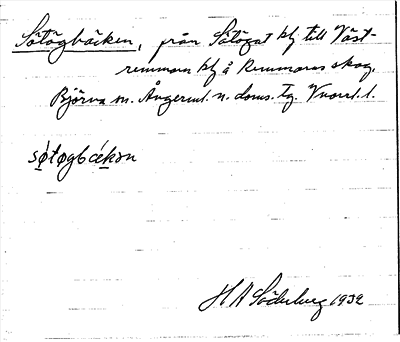 Sätögbäcken, från Sätögat kf till Väst-
remmarn kf å Remmarns skog.
Björna sn. Ångerml. n. doms. tg. Vnorrl. l.
søtøgbækən
H A Söderberg 1932